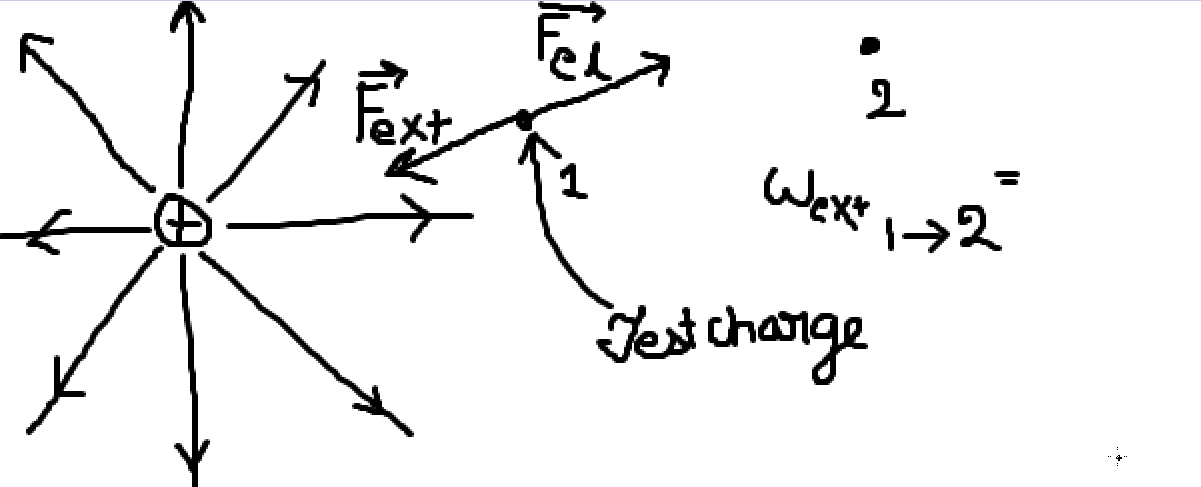 +
→F_ext
→F_el
1
2
W_ext 1→2 =
Test charge